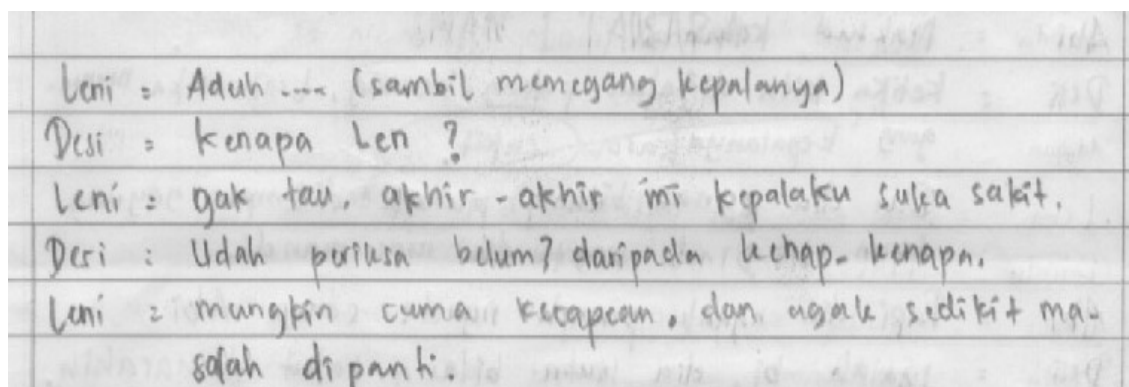 Leni = Aduh .... (sambil memegang kepalanya)
Desi = Kenapa Len ?
Leni = gak tau, akhir - akhir ini kepalaku suka sakit.
Desi = Udah periksa belum? daripada kenap-kenapa.
Leni = mungkin cuma kecapean, dan agak sedikit ma-
salah di panti.